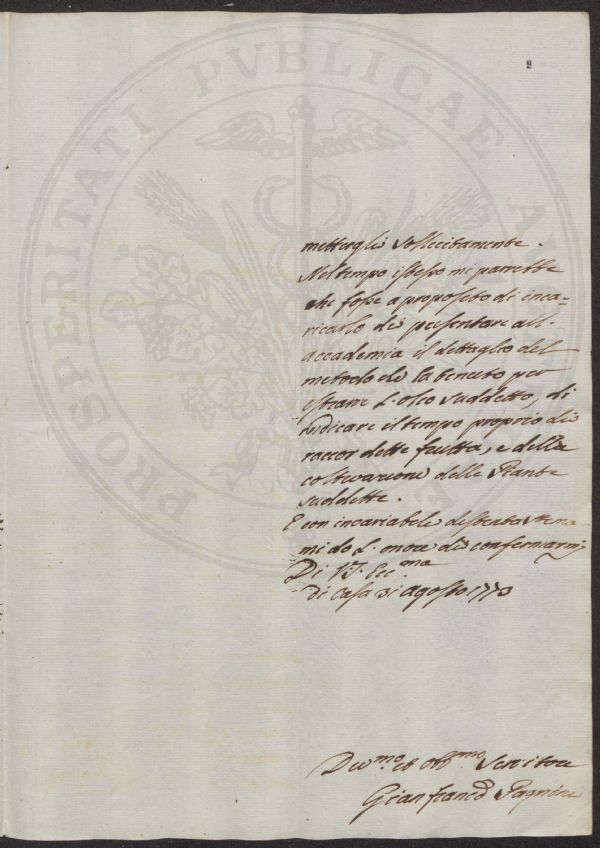 2
PROSPERITATI PVBLICAE AV
mettergli sollecitamente.
Nel tempo istesso mi parrebbe
che fosse a proposito di inca=
ricarlo di presentare all'
accademia il dettaglio del
metodo da la tenuto per
estrarre l'oleo suddetto, di
indicare il tempo proprio di
raccor dette frutta, e della
coltivazione delle Piante
suddette.
E con invariabile distinta stima
mi do l'onore di confermarmi
Di V.S. Ecc.ma
Di Casa 31 agosto 1773
Dev.mo ed Obb.mo Servitore
Gian franc.o Pagnini